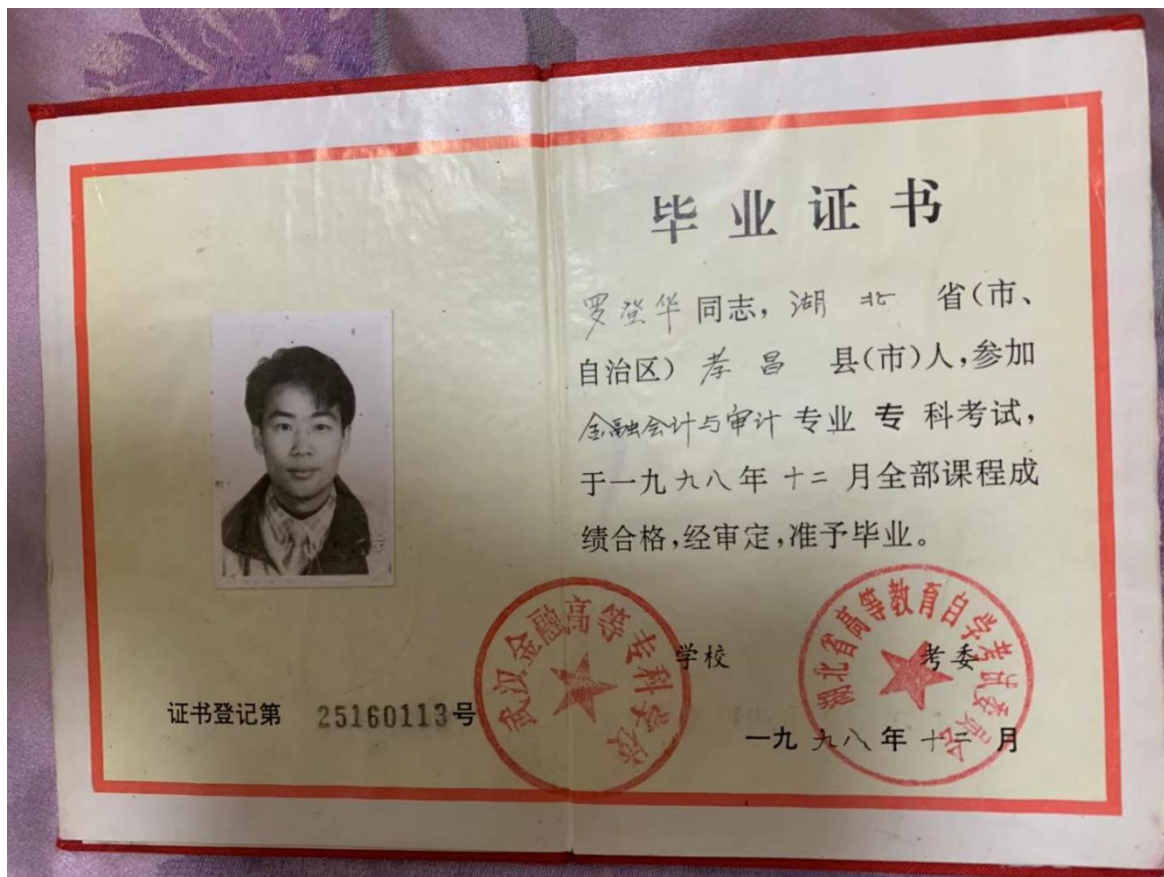 毕业证书
罗登华同志，湖北省（市、
自治区）孝昌县（市）人，参加
金融会计与审计专业专科考试，
于一九九八年十二月全部课程成
绩合格，经审定，准予毕业。
武汉金融高等专科学校
学校
湖北省高等教育自学考试委员会
考委
证书登记第 25160113号
一九九八年十二月